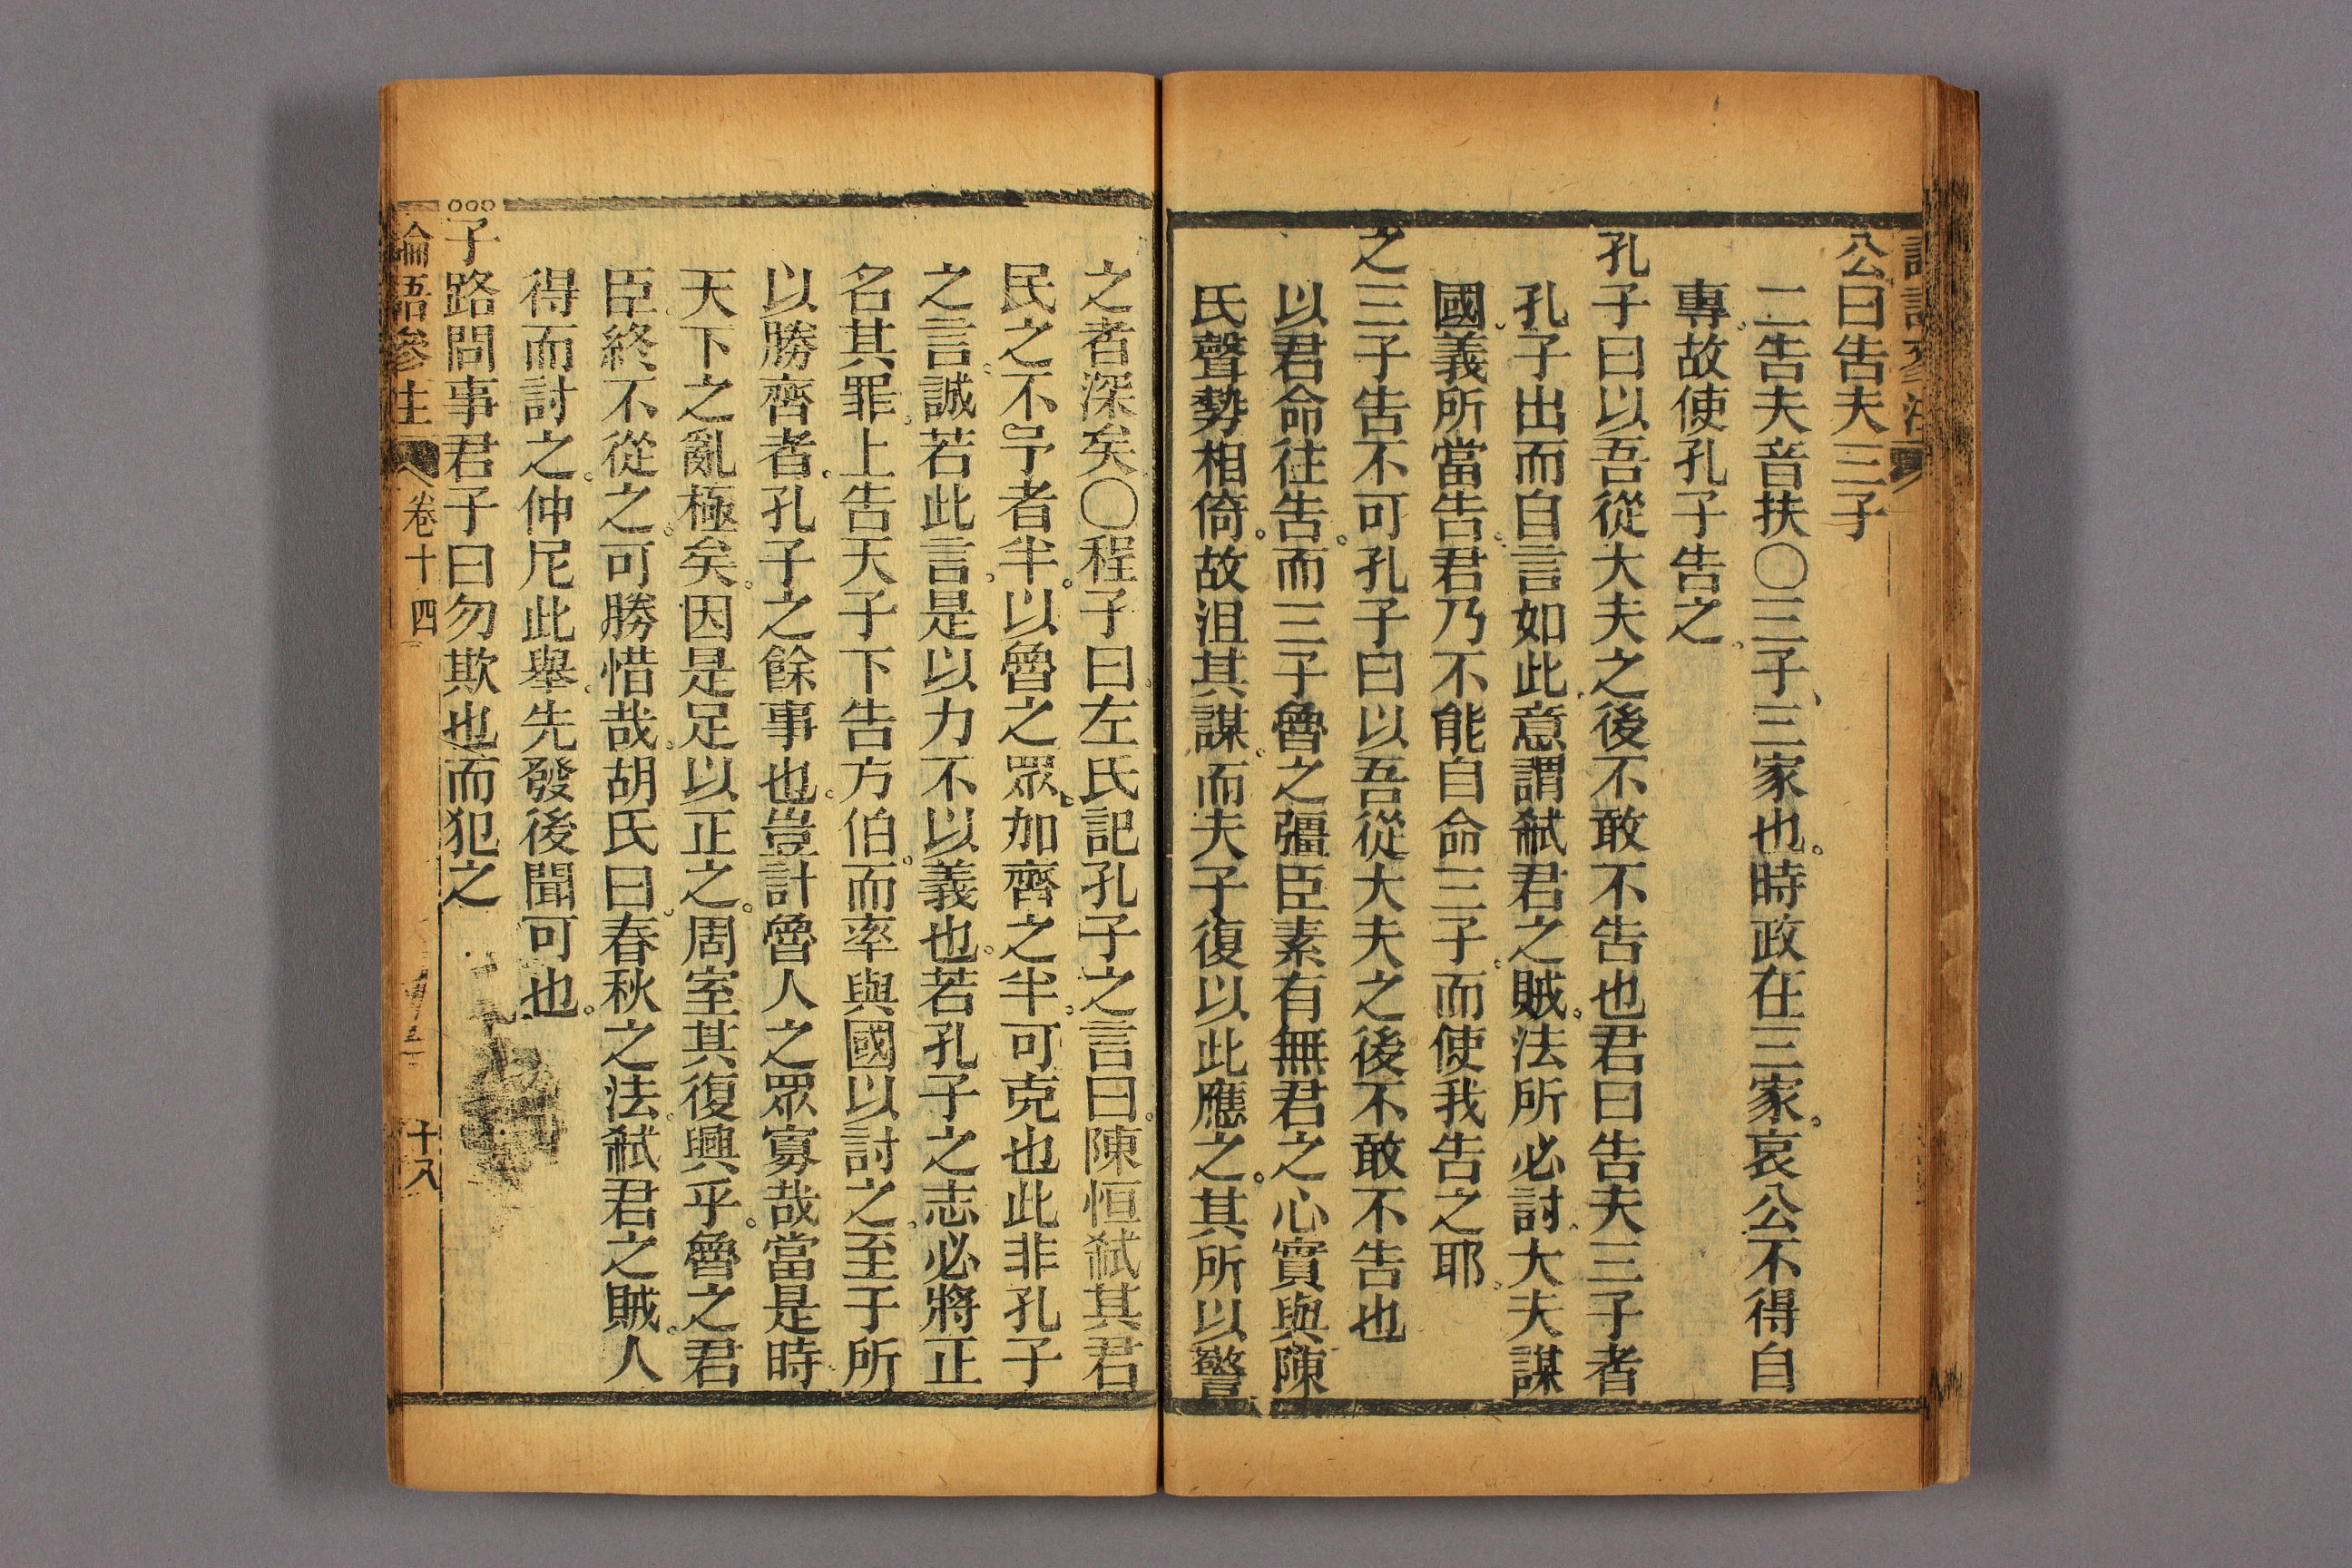 公曰告夫三子
二告夫音扶〇三子、三家也。時政在三家。哀公不得自
專。故使孔子告之。
孔子曰以吾從大夫之後不敢不告也君曰告夫三子者
孔子出而自言如此意謂弒君之賊。法所必討。大夫謀
國。義所當告。君乃不能自命三子。而使我告之耶。
之三子告不可孔子曰以吾從大夫之後不敢不告也
以君命往告。而三子魯之彊臣素有無君之心實與陳
氏聲勢相倚。故沮其謀。而夫子復以此應之。其所以警
之者深矣〇程子曰。左氏記孔子之言曰。陳恒弒其君
民之不予者半。以魯之眾。加齊之半。可克也此非孔子
之言。誠若此言。是以力不以義也。若孔子之志必將正
名其罪。上告天子下告方伯。而率與國以討之。至于所
以勝齊者。孔子之餘事也。豈計魯人之眾寡哉當是時
天下之亂極矣。因是足以正之。周室其復興乎。魯之君
臣。終不從之。可勝惜哉。胡氏曰。春秋之法。弒君之賊。人
得而討之。仲尼此舉。先發後聞可也。
子路問事君子曰勿欺也而犯之
論語參註 卷十四 十八